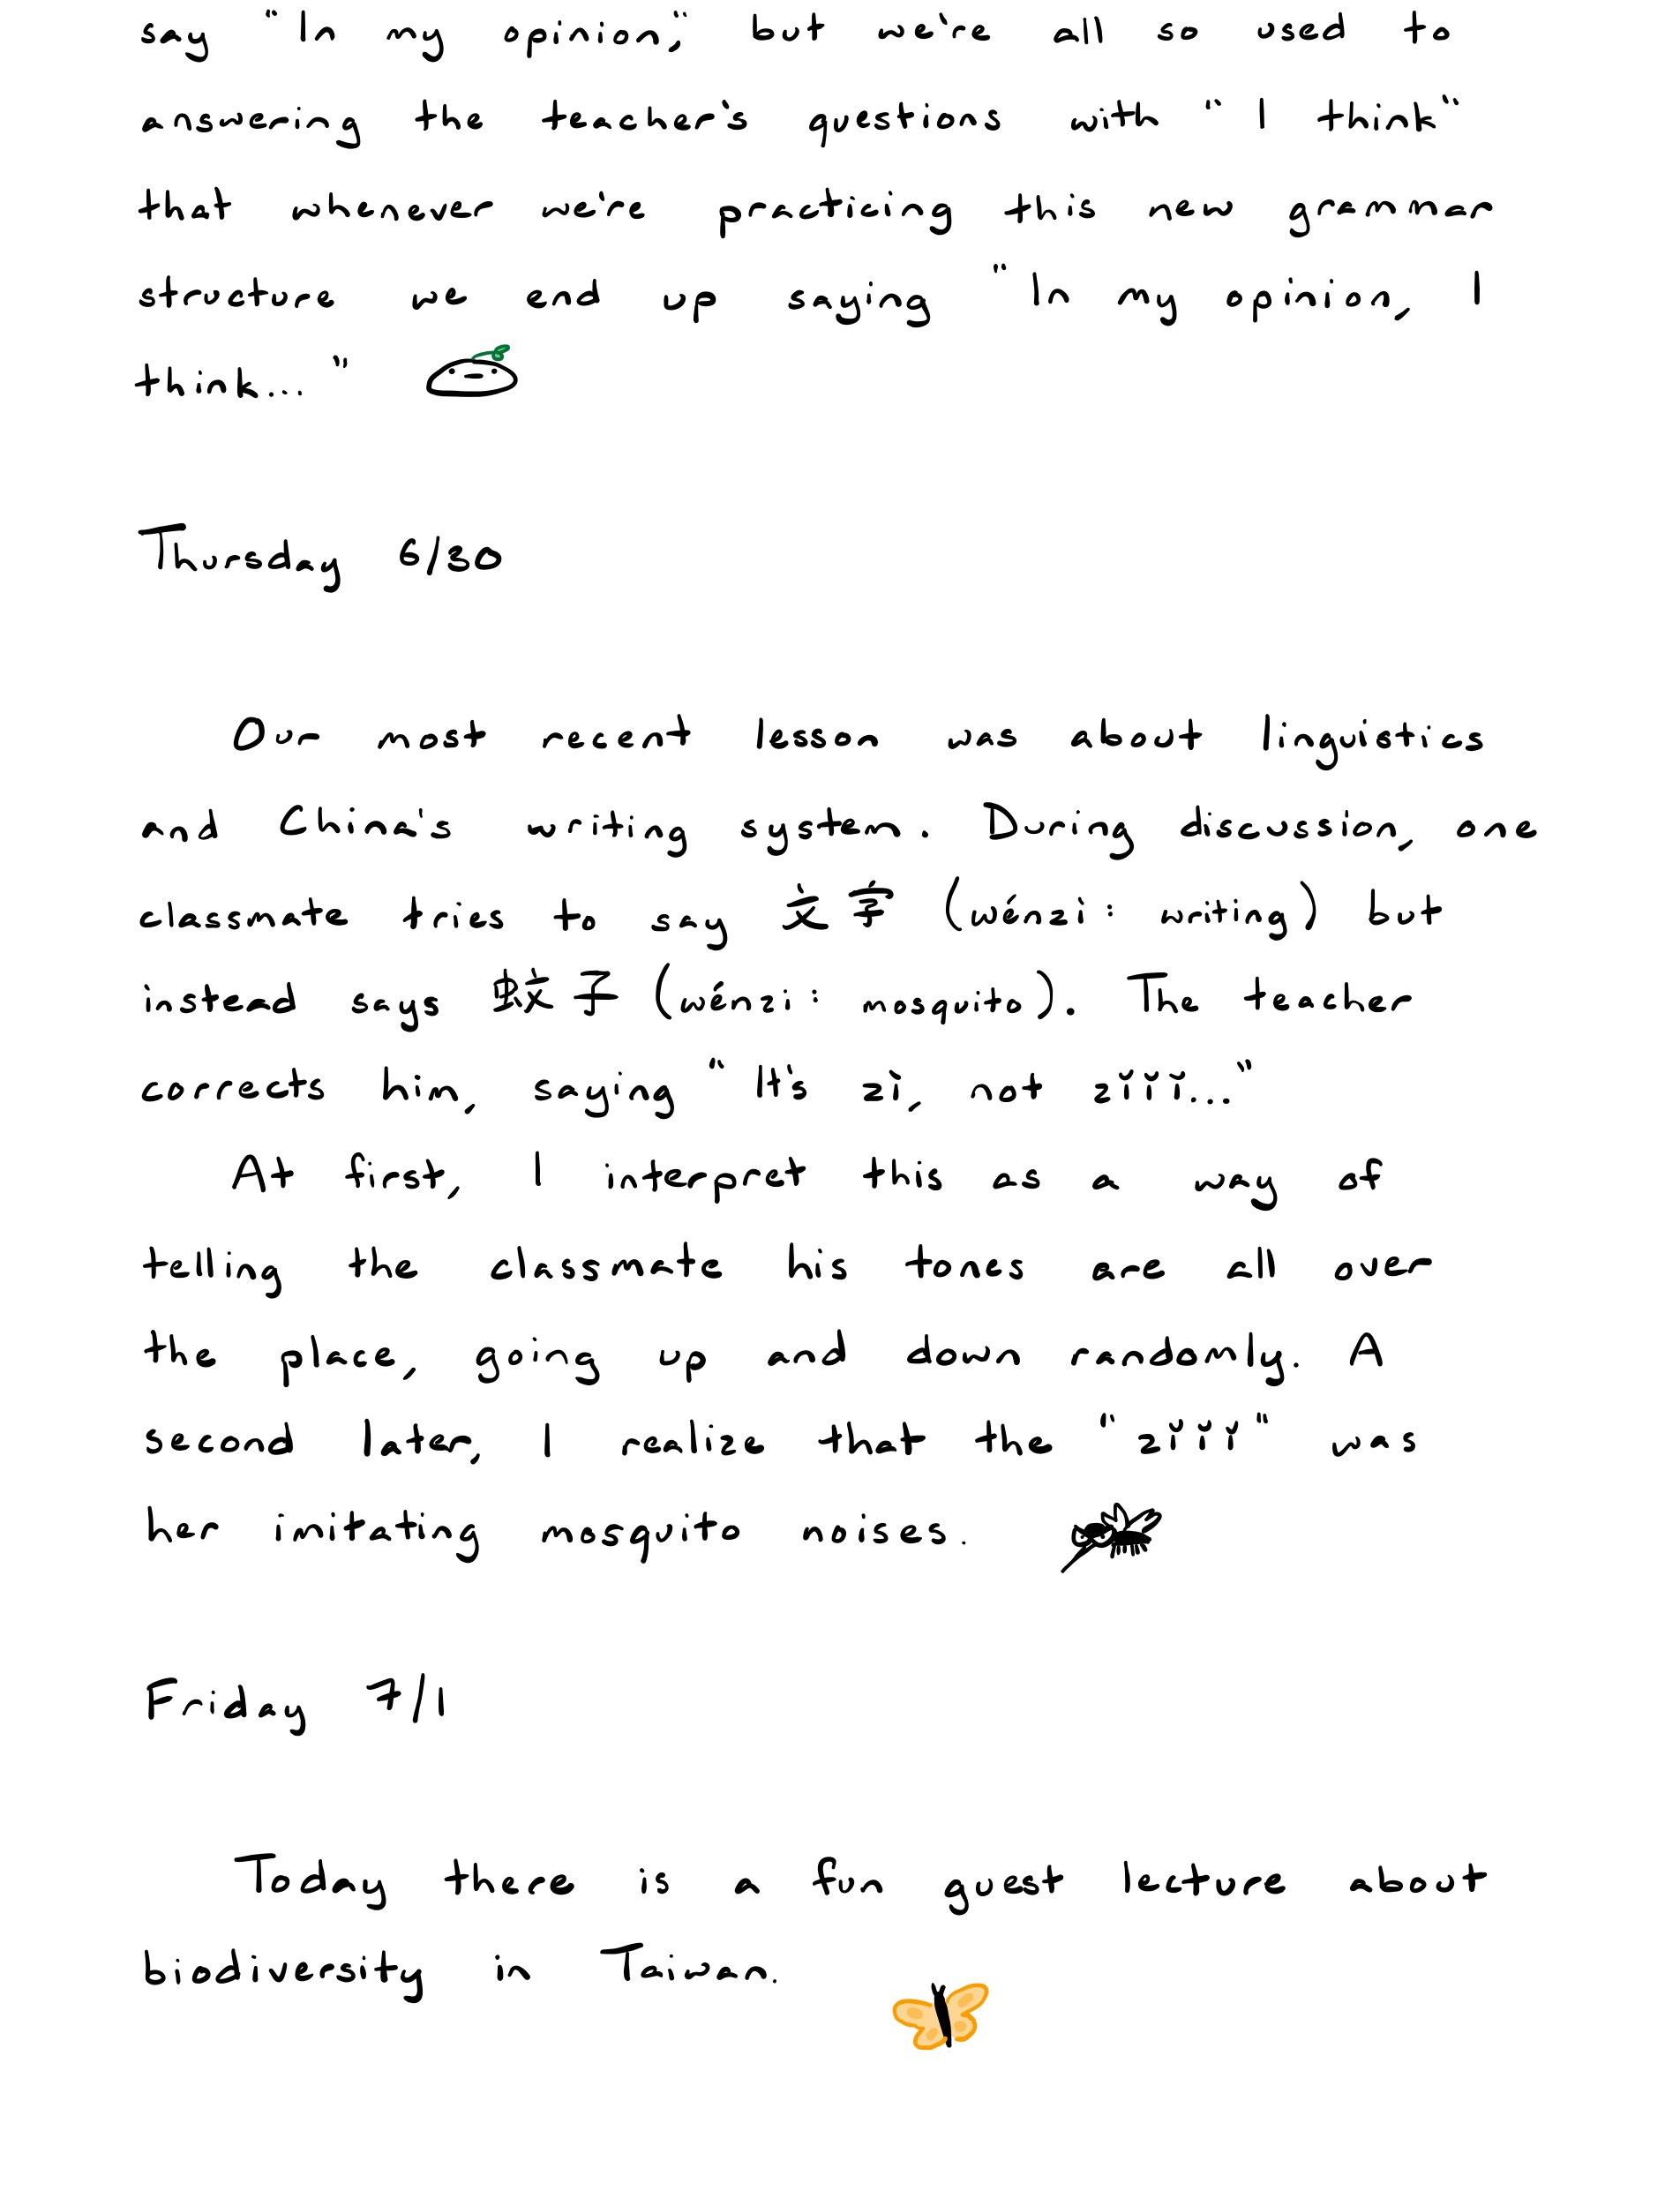 say "In my opinion," but we're all so used to
answering the teacher's questions with "I think"
that whenever we're practicing this new grammar
structure we end up saying "In my opinion, I
think..."
Thursday 6/30
Our most recent lesson was about linguistics
and China's writing system. During discussion, one
classmate tries to say 文字 (wénzì: writing) but
instead says 蚊子 (wénzi: mosquito). The teacher
corrects him, saying "It's zì, not zǐǐǐ..."
At first, I interpret this as a way of
telling the classmate his tones are all over
the place, going up and down randomly. A
second later, I realize that the "zǐǐǐ" was
her imitating mosquito noises.
Friday 7/1
Today there is a fun guest lecture about
biodiversity in Taiwan.